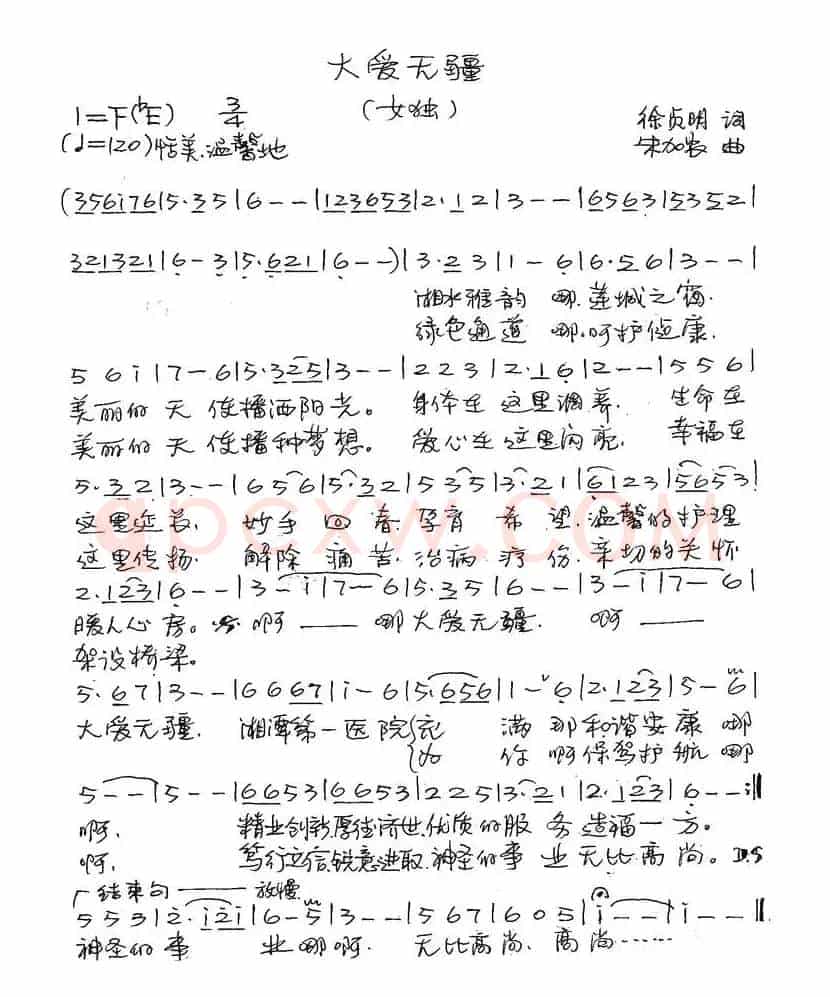 大爱无疆
(女独)
1=F(♭E) 3/4
(♩=120)恬美.温馨地
徐贞明 词
宋加农 曲
(356i76|5·35|6--|123653|2·12|3--|6563|5352|
321321|6-3|5·621|6--)|3·23|1-6|6·56|3--|
湘水雅韵 哪.莲城之窗.
绿色通道 哪.呵护健康.
56i|7-6|5·325|3--|223|2·16|2--|556|
美丽的天使播洒阳光。 身体在这里调养. 生命在
美丽的天使播种梦想。 爱心在这里闪亮. 幸福在
5·32|3--|656|5·32|535|3·21|6123|5653|
这里延若. 妙手回春.孕育希望.温馨的护理
这里传扬. 解除痛苦.治病疗伤.亲切的关怀
qpcxw.com
2·123|6--|3-i|7-6|5·35|6--|3-i|7-6|
暖人心房。 啊——哪大爱无疆. 啊——
架设桥梁。
5·67|3--|6667|i-6|5·656|1-6|2·123|5-6|
大爱无疆. 湘潭第一医院{充 满 那和谐安康 哪
{为 你 啊保驾护航 哪
5--|5--|6653|6653|225|3·21|2·123|6--:‖
啊. 精业创新.厚德济世.优质的服务造福一方。
啊. 笃行立信.锐意进取.神圣的事业无比高尚。D.S
结束句——放慢
553|2·i2i|6-5|3--|567|605|i--|i--‖
神圣的事 业哪啊. 无比高尚.高尚……